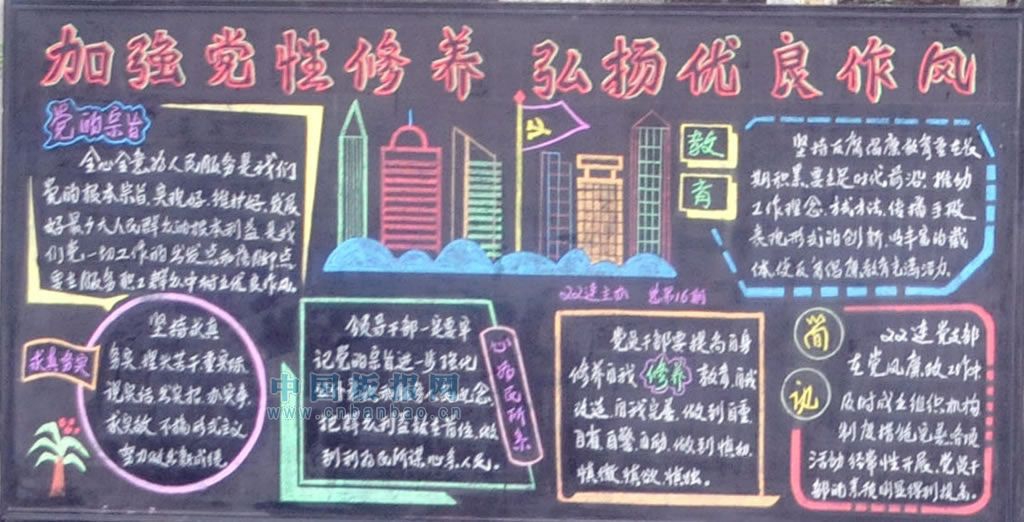 加强党性修养 弘扬优良作风
党的宗旨
全心全意为人民服务是我们
党的根本宗旨,实现好、维护好、发展
好最广大人民群众的根本利益是我
们党一切工作的出发点和落脚点
要在服务职工群众中树立优良作风。
教育
坚持反腐倡廉教育重在长
期积累,要立足时代前沿,推动
工作理念、方式方法、传播手段、
表现形式的创新,以丰富的载
体使反腐倡廉教育充满活力。
22连主办 总第16期
求真务实
坚持求真
务实,埋头苦干,重实际
说实话,出实招,办实事,
求实效,不搞形式主义
努力创出新成绩。
领导干部一定要牢
记党的宗旨,进一步强化
把群众利益放在首位,做
到利为民所谋,心系人民。
心为民所系
党员干部要提高自身
修养,自我修养教育,自我
改造,自我完善,做到自重、
自省、自警、自励,做到慎初、
慎微、慎欲、慎独。
简讯
22连党支部
在党风廉政工作中
及时成立组织机构
制度措施完善,各项
活动经常性开展,党员干
部的素质明显得到提高。
中国板报网
www.cnbanbao.cn